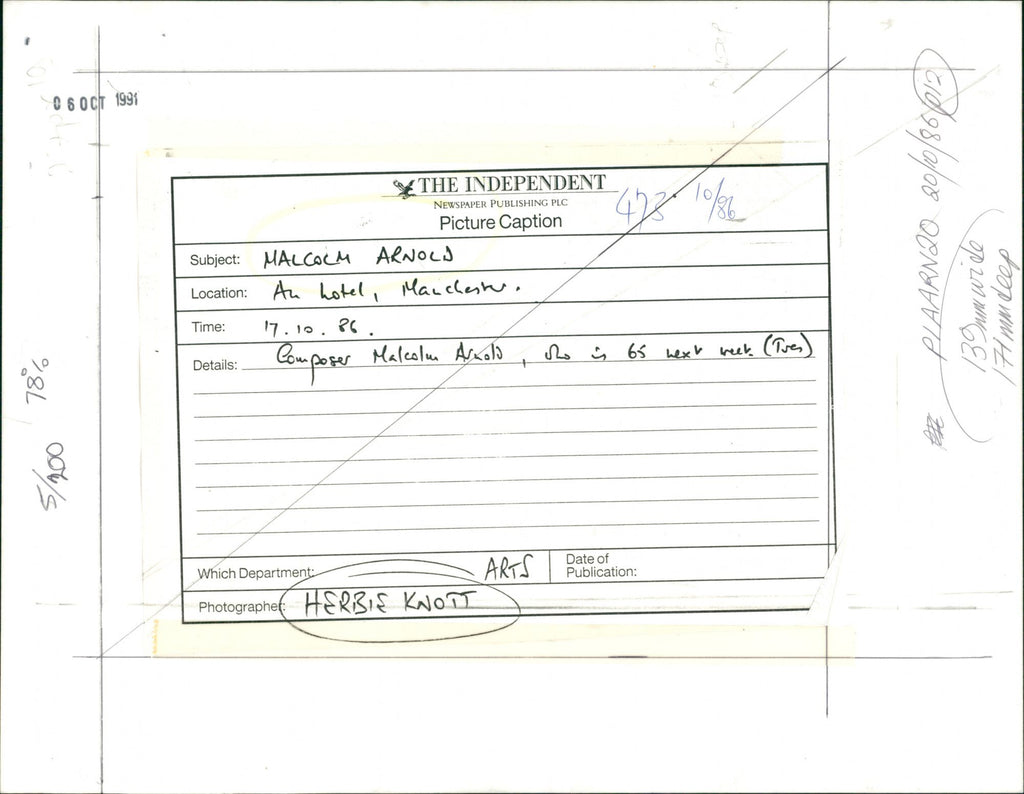 06 OCT 1991
THE INDEPENDENT
NEWSPAPER PUBLISHING PLC
Picture Caption
473 10/86
Subject: MALCOLM ARNOLD
Location: An hotel, Manchester.
Time: 17.10.86.
Details: Composer Malcolm Arnold, who is 65 next week (Tues)
Which Department: ARTS
Date of Publication:
Photographer: HERBIE KNOTT
78%
5/200
P1AARN20 20/10/86 p12
139mm wide
171mm deep